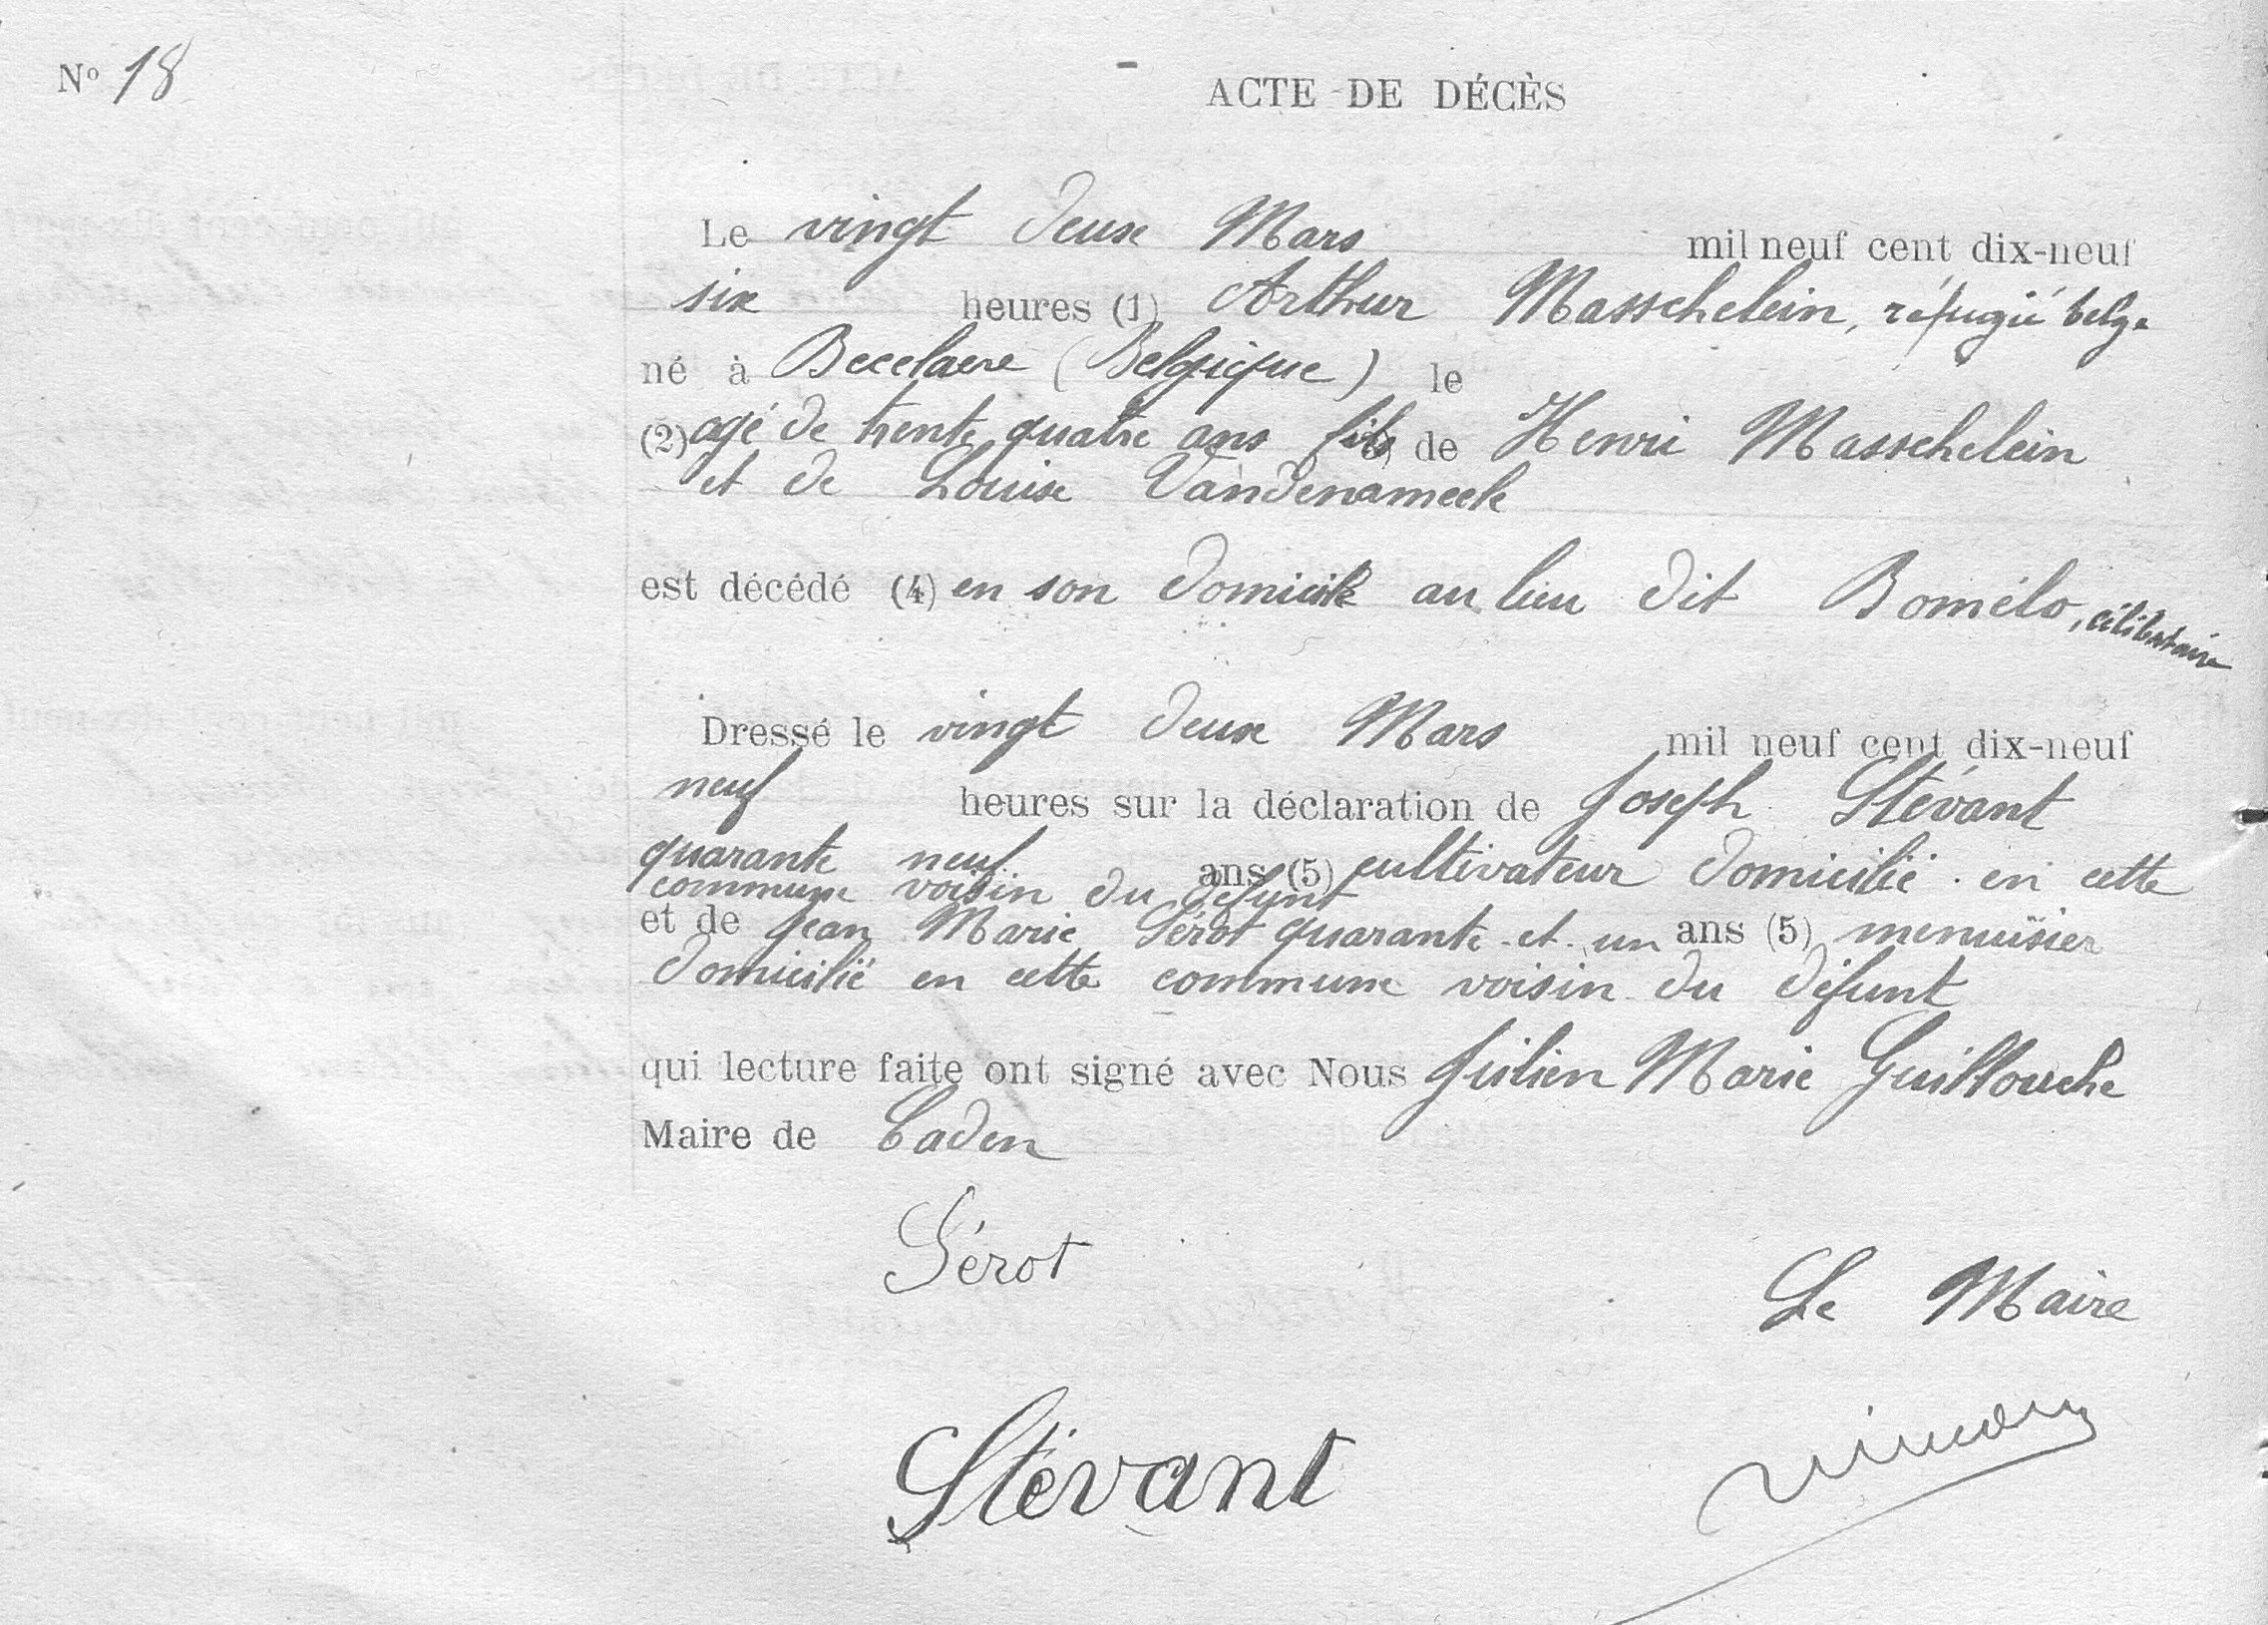 N° 18
ACTE DE DÉCÈS
Le vingt deux Mars mil neuf cent dix-neuf
six heures (1) Arthur Masschelein, réfugié belge
né à Becelaere (Belgique) le
(2) agé de trente quatre ans fils de Henri Masschelein
et de Louise Vandenameele
est décédé (4) en son domicile au lieu dit Bomélo, célibataire
Dressé le vingt deux Mars mil neuf cent dix-neuf
neuf heures sur la déclaration de Joseph Stévant
quarante neuf ans (5) cultivateur domicilié en cette
commune voisin du défunt
et de Jean Marie Sérot quarante et un ans (5) menuisier
domicilié en cette commune voisin du défunt
qui lecture faite ont signé avec Nous Julien Marie Guillouche
Maire de Caden
Sérot
Le Maire
Stévant